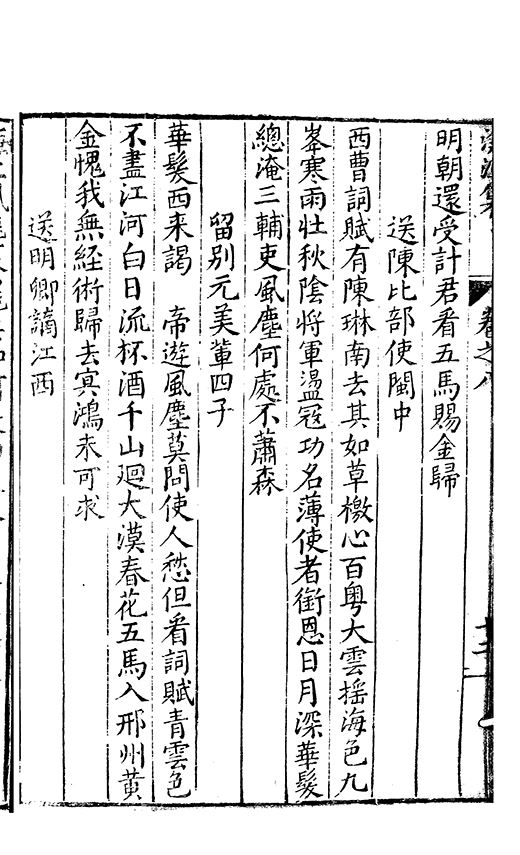 卷之八
明朝還受計君看五馬賜金歸
送陳比部使閩中
西曹詞賦有陳琳南去其如草檄心百粵大雲揺海色九
峯寒雨壮秋陰將軍盪冦功名薄使者銜恩日月深華髮
總淹三輔吏風塵何處不蕭森
留别元美輩四子
華髮西来謁　帝遊風塵莫問使人愁但看詞賦青雲色
不盡江河白日流杯酒千山廻大漠春花五馬入邢州黄
金愧我無經術歸去冥鴻未可求
送明卿謫江西